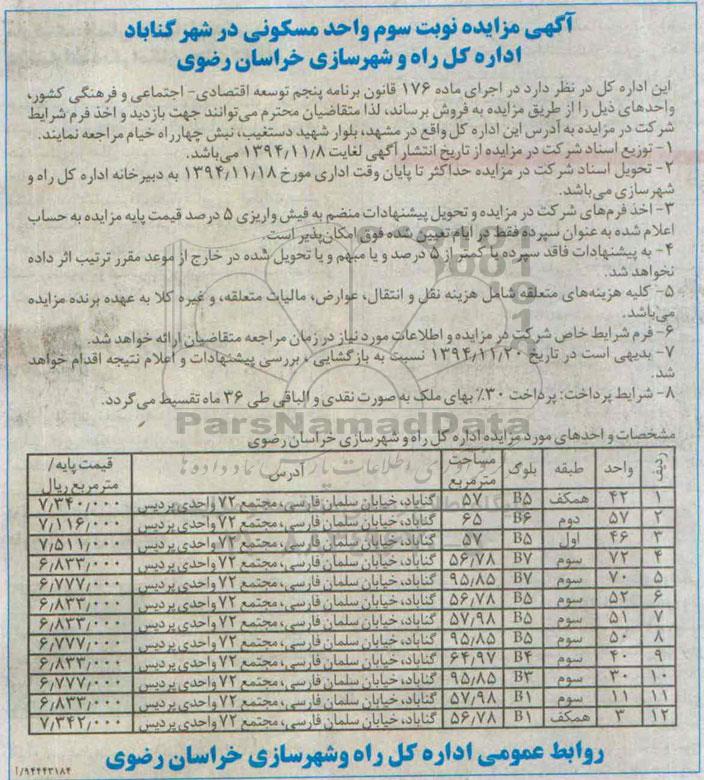 آگهی مزایده نوبت سوم واحد مسکونی در شهر گناباد
اداره کل راه و شهرسازی خراسان رضوی
این اداره کل در نظر دارد در اجرای ماده ۱۷۶ قانون برنامه پنجم توسعه اقتصادی- اجتماعی و فرهنگی کشور،
واحدهای ذیل را از طریق مزایده به فروش برساند، لذا متقاضیان محترم می‌توانند جهت بازدید و اخذ فرم شرایط
شرکت در مزایده به آدرس این اداره کل واقع در مشهد، بلوار شهید دستغیب، نبش چهارراه خیام مراجعه نمایند.
۱- توزیع اسناد شرکت در مزایده از تاریخ انتشار آگهی لغایت ۱۳۹۴٫۱۱٫۸ می‌باشد.
۲- تحویل اسناد شرکت در مزایده حداکثر تا پایان وقت اداری مورخ ۱۳۹۴٫۱۱٫۱۸ به دبیرخانه اداره کل راه و
شهرسازی می‌باشد.
۳- اخذ فرم‌های شرکت در مزایده و تحویل پیشنهادات منضم به فیش واریزی ۵ درصد قیمت پایه مزایده به حساب
اعلام شده به عنوان سپرده فقط در ایام تعیین شده فوق امکان‌پذیر است.
۴- به پیشنهادات فاقد سپرده یا کمتر از ۵ درصد و یا مبهم و یا تحویل شده در خارج از موعد مقرر ترتیب اثر داده
نخواهد شد.
۵- کلیه هزینه‌های متعلقه شامل هزینه نقل و انتقال، عوارض، مالیات متعلقه، و غیره کلا به عهده برنده مزایده
می‌باشد.
۶- فرم شرایط خاص شرکت در مزایده و اطلاعات مورد نیاز در زمان مراجعه متقاضیان ارائه خواهد شد.
۷- بدیهی است در تاریخ ۱۳۹۴٫۱۱٫۲۰ نسبت به بازگشایی ، بررسی پیشنهادات و اعلام نتیجه اقدام خواهد
شد.
۸- شرایط پرداخت: پرداخت ۳۰٪ بهای ملک به صورت نقدی و الباقی طی ۳۶ ماه تقسیط می‌گردد.
ParsNamadData
مشخصات و احدهای مورد مزایده اداره کل راه و شهرسازی خراسان رضوی
ردیف واحد طبقه بلوک مساحت مترمربع آدرس قیمت پایه/ مترمربع ریال
۱ ۴۲ همکف B۵ ۵۷ گناباد، خیابان سلمان فارسی، مجتمع ۷۲ واحدی پردیس ۷٫۳۴۰٫۰۰۰
۲ ۵۷ دوم B۶ ۶۵ گناباد، خیابان سلمان فارسی، مجتمع ۷۲ واحدی پردیس ۷٫۱۱۶٫۰۰۰
۳ ۴۶ اول B۵ ۵۷ گناباد، خیابان سلمان فارسی، مجتمع ۷۲ واحدی پردیس ۷٫۵۱۱٫۰۰۰
۴ ۷۲ سوم B۷ ۵۶٫۷۸ گناباد، خیابان سلمان فارسی، مجتمع ۷۲ واحدی پردیس ۶٫۸۳۳٫۰۰۰
۵ ۷۰ سوم B۷ ۹۵٫۸۵ گناباد، خیابان سلمان فارسی، مجتمع ۷۲ واحدی پردیس ۶٫۷۷۷٫۰۰۰
۶ ۵۲ سوم B۵ ۵۶٫۷۸ گناباد، خیابان سلمان فارسی، مجتمع ۷۲ واحدی پردیس ۶٫۸۳۳٫۰۰۰
۷ ۵۱ سوم B۵ ۵۷٫۹۸ گناباد، خیابان سلمان فارسی، مجتمع ۷۲ واحدی پردیس ۶٫۸۳۳٫۰۰۰
۸ ۵۰ سوم B۵ ۹۵٫۸۵ گناباد، خیابان سلمان فارسی، مجتمع ۷۲ واحدی پردیس ۶٫۷۷۷٫۰۰۰
۹ ۴۰ سوم B۴ ۶۴٫۹۷ گناباد، خیابان سلمان فارسی، مجتمع ۷۲ واحدی پردیس ۶٫۸۳۳٫۰۰۰
۱۰ ۳۰ سوم B۳ ۹۵٫۸۵ گناباد، خیابان سلمان فارسی، مجتمع ۷۲ واحدی پردیس ۶٫۷۷۷٫۰۰۰
۱۱ ۱۱ سوم B۱ ۵۷٫۹۸ گناباد، خیابان سلمان فارسی، مجتمع ۷۲ واحدی پردیس ۶٫۸۳۳٫۰۰۰
۱۲ ۳ همکف B۱ ۵۶٫۷۸ گناباد، خیابان سلمان فارسی، مجتمع ۷۲ واحدی پردیس ۷٫۳۴۲٫۰۰۰
روابط عمومی اداره کل راه وشهرسازی خراسان رضوی
۹۴۴۴۳۱۸۴/آ